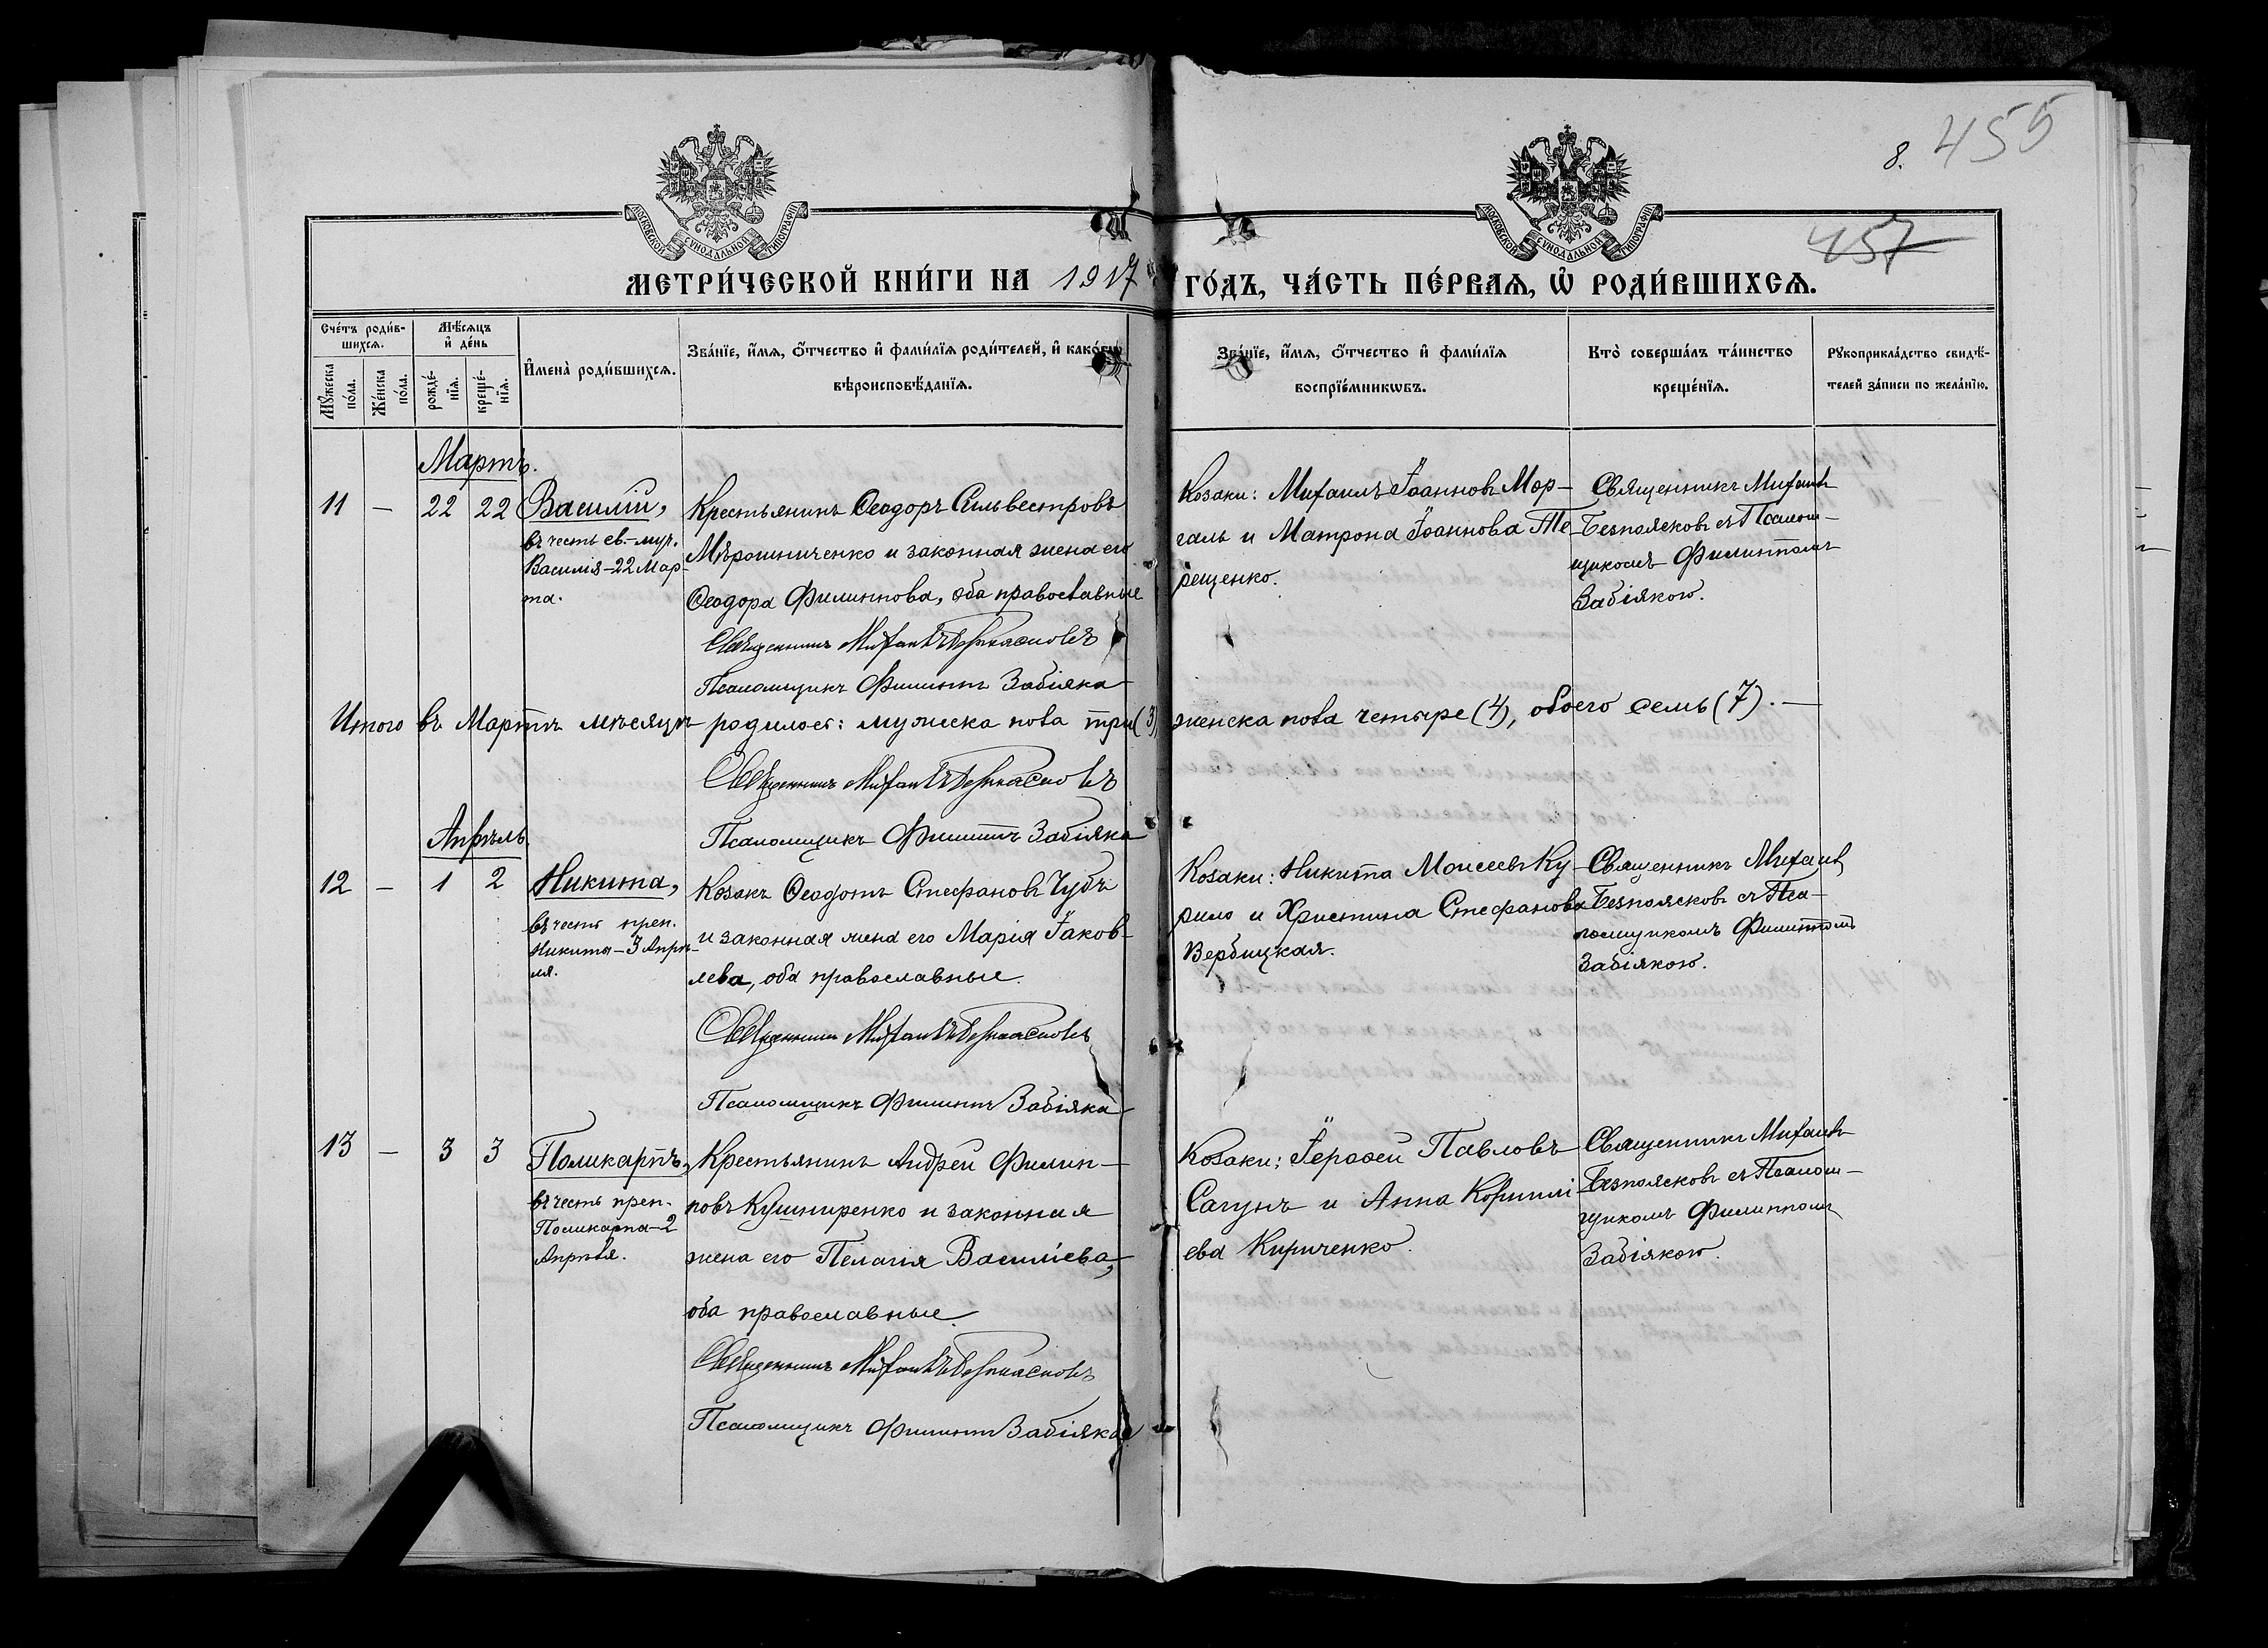 8. 455
457
МОСКОВСКОЙ СѴНОДАЛЬНОЙ ТИПОГРАФІИ
МОСКОВСКОЙ СѴНОДАЛЬНОЙ ТИПОГРАФІИ
МЕТРИ́ЧЕСКОЙ КНИ́ГИ НА 1917 ГО́ДЪ, ЧА́СТЬ ПЕ́РВАѦ, Ѡ҆ РОДИ́ВШИХСѦ.
Сче́тъ роди́в-
шихсѧ.
Мꙋ́жеска по́ла.
Же́нска по́ла.
Мѣ́сѧцъ
и҆ де́нь
рожде́-
нїѧ.
креще́-
нїѧ.
И҆мена̀ роди́вшихсѧ.
Зва́нїе, и҆́мѧ, ѻ҆́тчество и҆ фами́лїѧ роди́телей, и҆ како́гѡ
вѣроисповѣ́данїѧ.
Зва́нїе, и҆́мѧ, ѻ҆́тчество и҆ фами́лїѧ
воспрїе́мникѡвъ.
Кто̀ соверша́лъ та́инство
креще́нїѧ.
Рꙋкоприкла́дство свидѣ́-
телей за́писи по жела́нїю.
Мартъ.
11 — 22 22 Василій,
въ честь св.-муч.
Василія-22 Мар-
та.
Крестьянинъ Ѳеодоръ Сильвестровъ
Мѣрошниченко и законная жена его
Ѳеодора Филиппова, оба православные
Священникъ Михаилъ Безпоясковъ
Псаломщикъ Филиппъ Забіяка
Козаки: Михаилъ Іоанновъ Мор-
галь и Матрона Іоаннова Те-
рещенко.
Священникъ Михаилъ
Безпоясковъ съ Псалом-
щикомъ Филиппомъ
Забіякою.
Итого въ Мартѣ мѣсяцѣ родилось: мужеска пола три (3), женска пола четыре (4), обоего семь (7). —
Священникъ Михаилъ Безпоясковъ
Псаломщикъ Филиппъ Забіяка
Апрѣль.
12 — 1 2 Никита,
въ честь преп.
Никиты-3 Апрѣ-
ля.
Козакъ Ѳеодотъ Стефановъ Чубъ
и законная жена его Марія Іаков-
лева, оба православные.
Священникъ Михаилъ Безпоясковъ
Псаломщикъ Филиппъ Забіяка
Козаки: Никита Моисеевъ Ку-
рило и Христина Стефанова
Вербицкая.
Священникъ Михаилъ
Безпоясковъ съ Пса-
ломщикомъ Филиппомъ
Забіякою.
13 — 3 3 Поликарпъ,
въ честь преп.
Поликарпа-2
Апрѣля.
Крестьянинъ Андрей Филип-
повъ Кушниренко и законная
жена его Пелагія Василіева,
оба православные.
Священникъ Михаилъ Безпоясковъ
Псаломщикъ Филиппъ Забіяка
Козаки: Іероѳей Павловъ
Сагунъ и Анна Корнилі-
ева Кириченко.
Священникъ Михаилъ
Безпоясковъ съ Псалом-
щикомъ Филиппомъ
Забіякою.